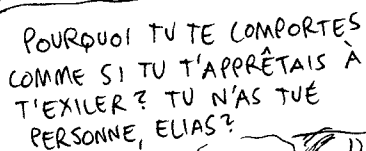 POURQUOI TU TE COMPORTES
COMME SI TU T'APPRÊTAIS À
T'EXILER? TU N'AS TUÉ
PERSONNE, ELIAS?